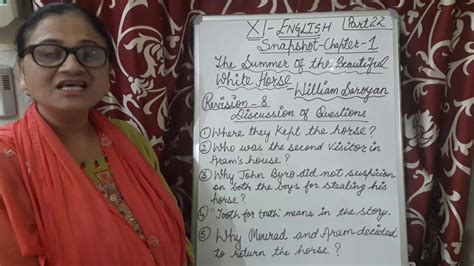 XI - ENGLISH Part 22
Snapshot - Chapter - 1
The Summer of the Beautiful
White Horse
- William Saroyan
Revision - 8
Discussion of Questions
① Where they kept the horse?
② Who was the second visitor in
Aram's house?
③ Why John Byro did not suspicion
on both the boys for stealing his
horse?
④ "Tooth for tooth" means in the story.
⑤ Why Mourad and Aram decided
to return the horse?